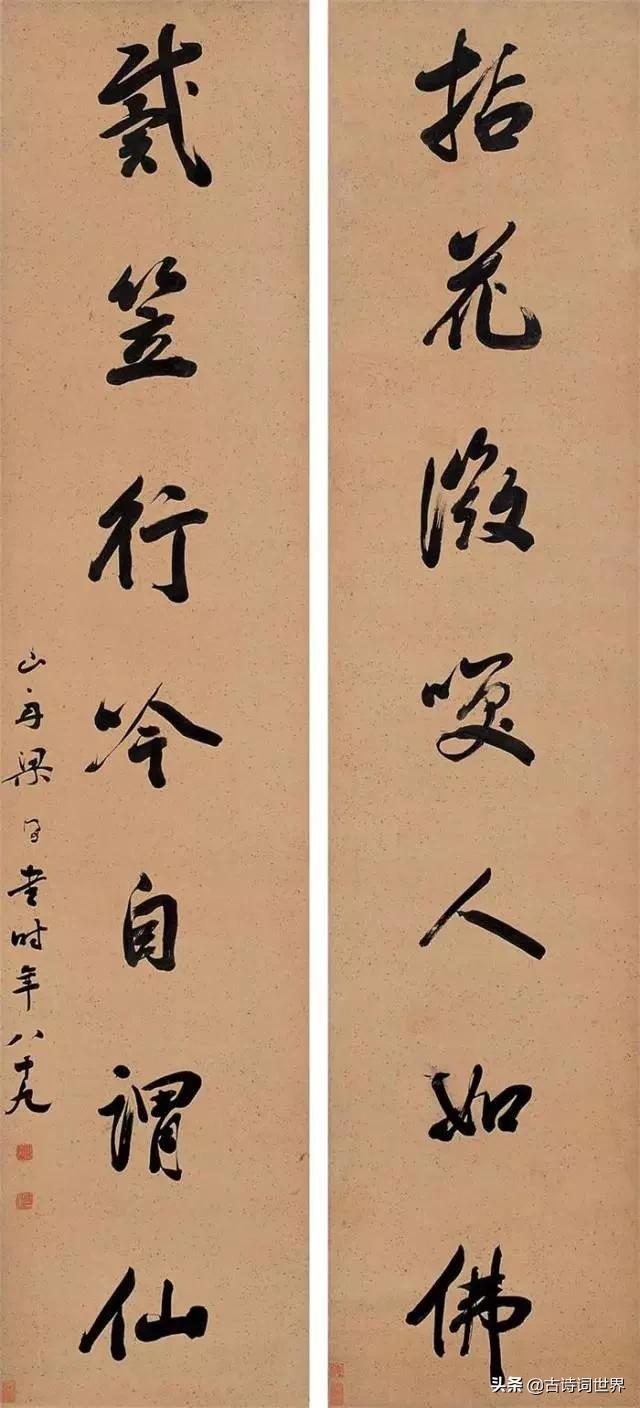 拈花微咲人如佛
戴笠行吟自謂仙
山舟梁同書時年八十九
头条 @古诗词世界